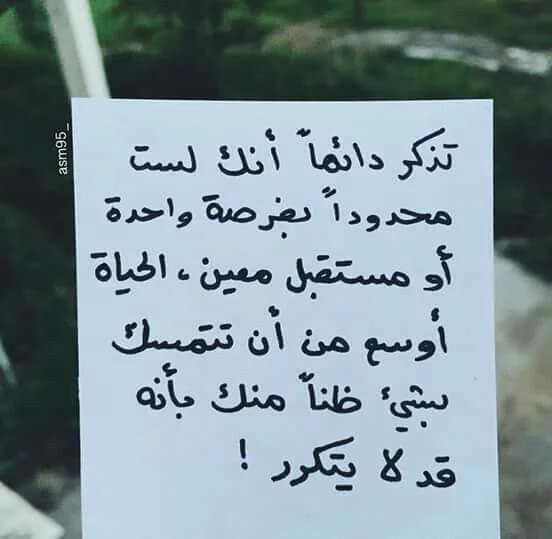 تذكر دائماً أنك لست
محدوداً بفرصة واحدة
أو مستقبل معين ، الحياة
أوسع من أن تتمسك
بشيء ظناً منك بأنه
قد لا يتكرر !
asm95_